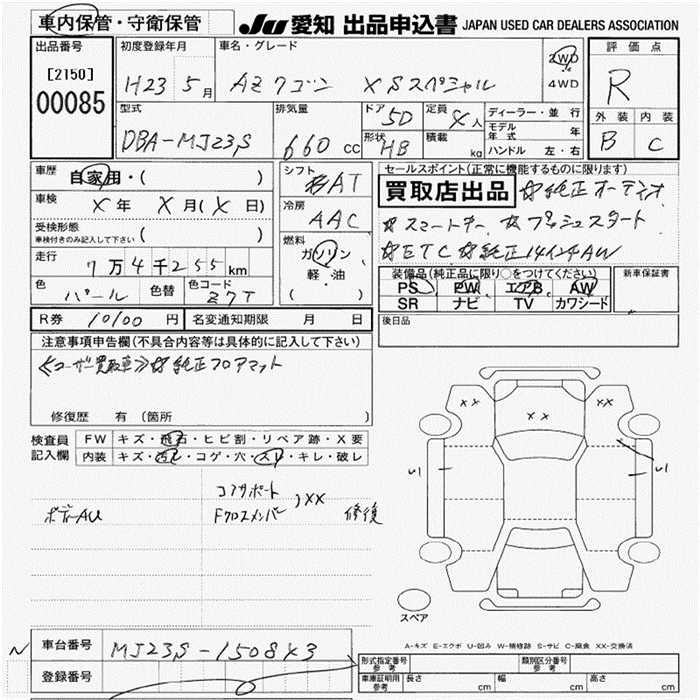 車内保管・守衛保管
JU 愛知 出品申込書 JAPAN USED CAR DEALERS ASSOCIATION
出品番号 [2150] 00085
初度登録年月 H23 5月
車名・グレード AZワゴン XSスペシャル
2WD 4WD
評価点 R
外装 B 内装 C
型式 DBA-MJ23S
排気量 660 cc
ドア 5D
定員 4人
形状 HB
積載 kg
ディーラー・並行
モデル年式 年
ハンドル 左・右
車歴 自家用・( )
車検 X年 X月(X日)
受検形態 車検付きのみ記入して下さい ( )
走行 7万4千255km
色 パール 色替 色コード Z7T
シフト AT
冷房 AAC
燃料 ガソリン 軽・油 ( )
セールスポイント(正常に機能するものに限ります)
買取店出品 ☆純正オーディオ
☆スマートキー ☆プッシュスタート
☆ETC ☆純正14インチAW
装備品(純正品に限り○をつけてください)
PS PW エアB AW
SR ナビ TV カワシード
新車保証書
後日品
R券 10100円 名変通知期限 月 日
注意事項申告欄(不具合内容等は具体的に記入して下さい)
≪ユーザー買取車≫☆純正フロアマット
修復歴 有(箇所
検査員記入欄
FW キズ・飛石・ヒビ割・リペア跡・X要
内装 キズ・汚レ・コゲ・穴・スリ・キレ・破レ
コアサポート
ボデーAU Fクロスメンバー , XX 修復
XX XX XX
U1 U1
スペア
A-キズ E-エクボ U-凹み W-補修跡 S-サビ C-腐食 XX-交換済
N 車台番号 MJ23S-1508X3
登録番号
形式指定番号 参考 類別区分番号 参考
車庫証明用 参考 長さ cm 幅 cm 高さ cm